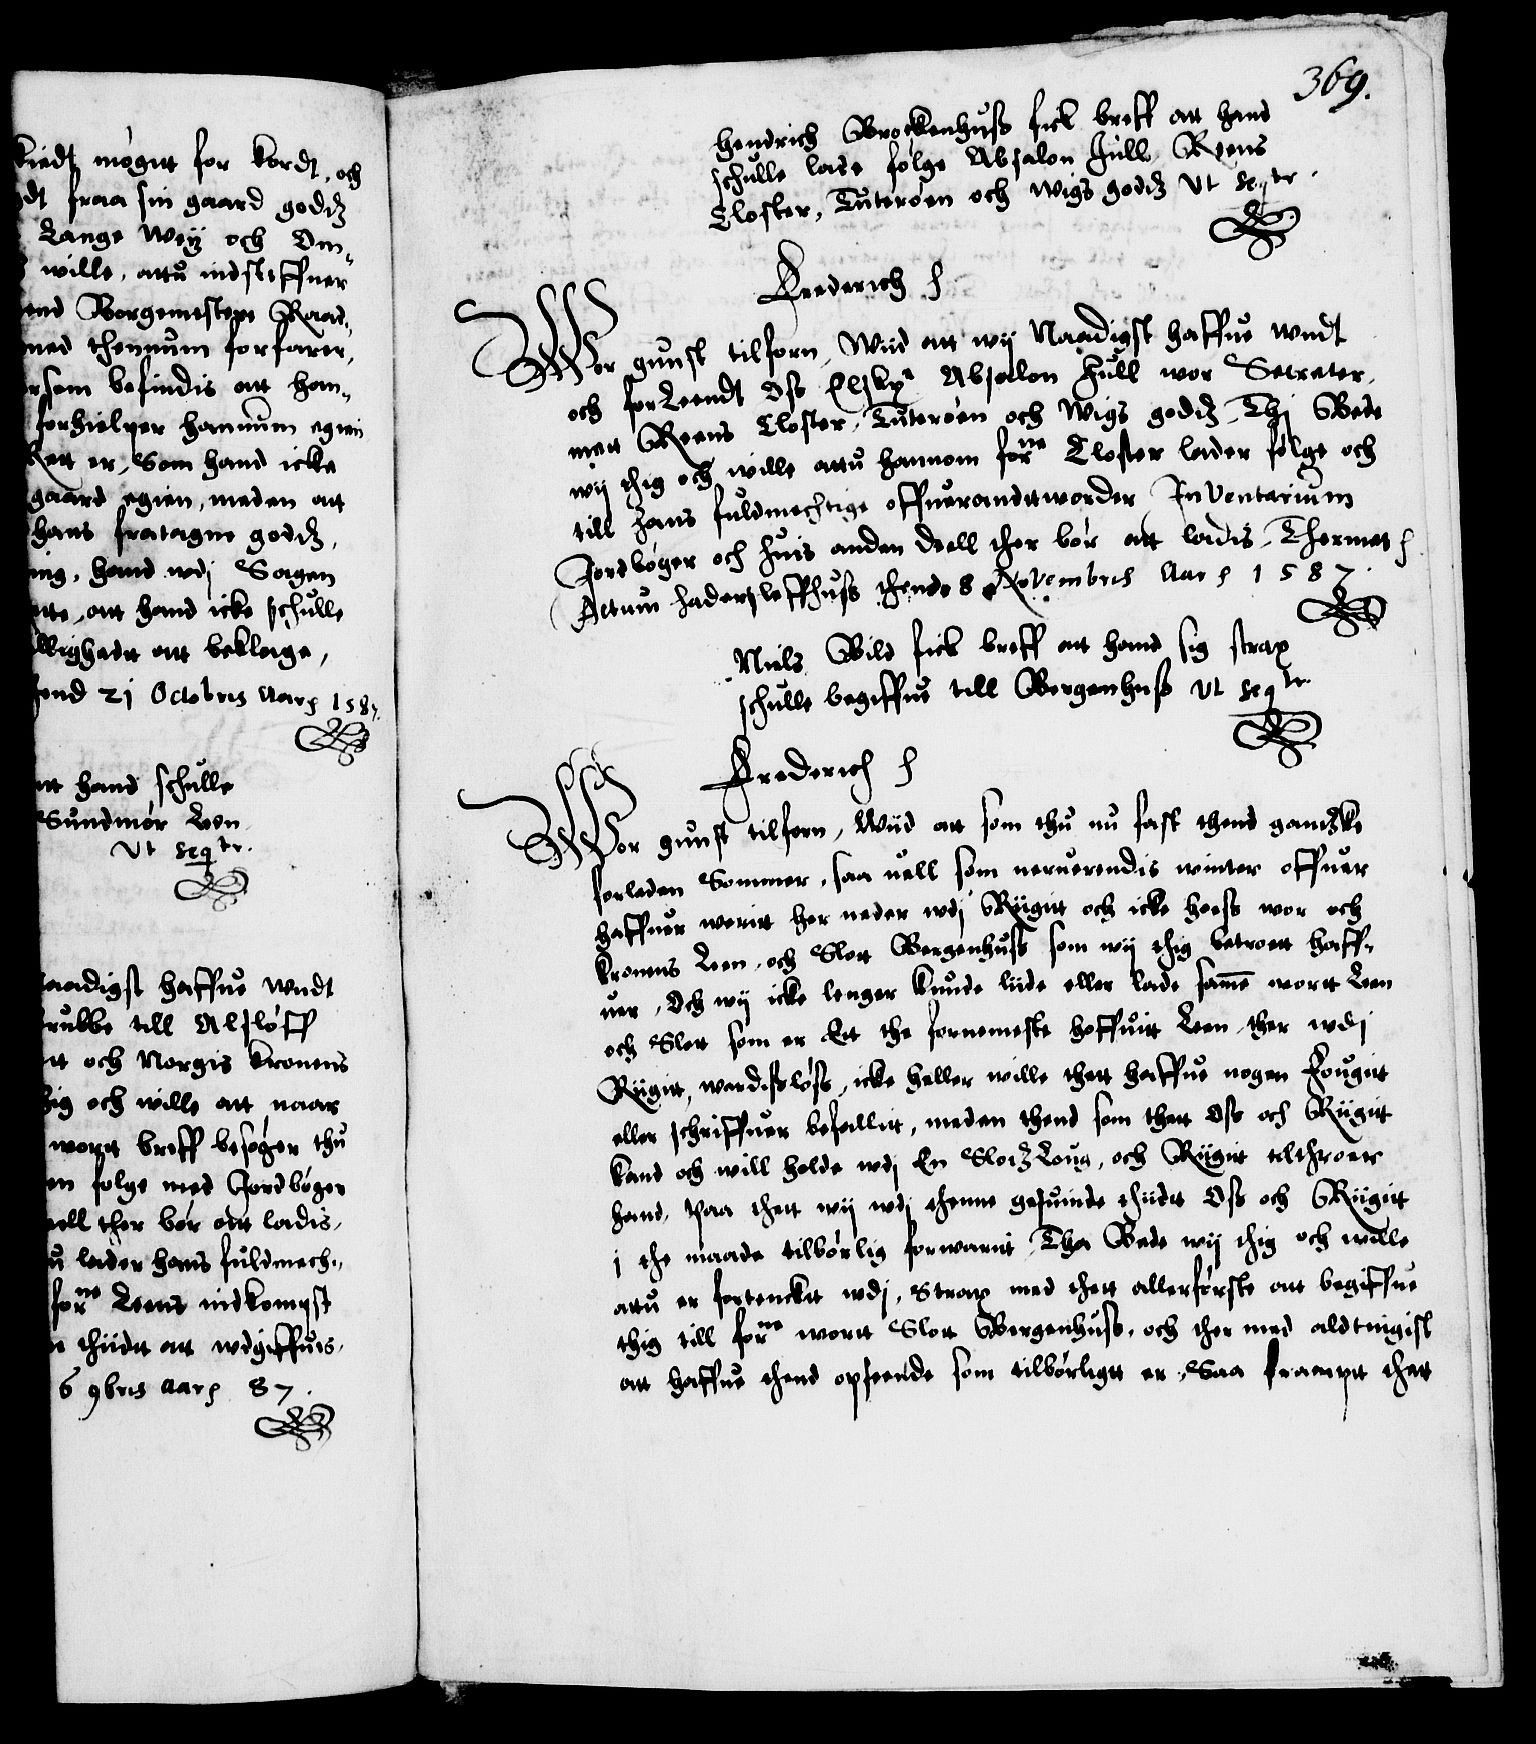 kiedt møgitt for kordt, och
dt fraa sin gaard godtz
Lange Weij och Om-
wille, attu indsteffner
end Borgemestere Raad-
med thennum forfarer,
som befindis att han-
forhielper hannum egien
Rett er, Som hand icke
gaard egien, meden att
hans fratagne godtz,
ing, hand wdj Sagen
ette, att hand icke schulle
willighedt att beklage,
hend 21 Octobris Aar 1587.
att hand schulle
Sundmør Leen
vt seqtr.
Naadigst haffue wndt
Grubbe till Alsløff
itt och Norgis Kronens
thig och wille att naar
wortt breff besøger thu
en følge med Jordbøger
dell ther bør att ladis,
u lader hans fuldmech-
forne Leens indkompst
n thiidt att wdgiffuis.
6 9bris Aar 87.
369.
Hendrich Brockenhuss fick breff att hand
schulle lade følge Absalon Jull Reens
Closter, Tuterøen och Wigs godtz vt seqtr.
Frederich
Wor gunst tilforn, Wiid att wij Naadigst haffue wndt
och forleendt Oss Elskr Absalon Jull wor Secreter,
mett Reens Closter, Tuterøen och Wigs godtz, Thj Bede
wij thig och wille attu hannom forne Closter lader følge och
till hans fuldmechtige offuerandttworder Inventarium
Jordbøger och huis anden deell ther bør att ladis, Thermet
Actum Haderssleffhuss thend 8 Novembris Aar 1587.
Niels Bild fick breff att hand sig strax
schulle begiffue till Bergenhuss vt seqtr.
Frederich
Wor gunst tilforn, Wiid att som thu nu fast thend gandtzke
forleden Sommer, saa uell som neruerendis winter offuer
haffuer werit her neder wdj Riigitt och icke hoess wor och
Kronens Leen, och Slott Bergenhuss som wij thig betroett haff-
uer, Och wij icke lenger kunde liide eller lade samme wortt Leen
och Slott som er Ett the fornemeste hoffuitt Leen, ther wdj
Riigitt, wardissløss, icke heller wille thett haffue nogen Fougitt
eller schriffuer befallit, meden thend som thett Oss och Riigitt
kand och will holde wdj En Slotz Loug, och Riigitt tilthroer
hand, Paa thett wij wdj thenne gesuinde thiidt Oss och Riigitt
j the maade tilbørlig forwarit, Tha Bede wij thig och wille
attu er fortenckt wdj, Strax med thett allerførste att begiffue
thig till forne wortt Slott Bergenhuss, och ther med aldtingist
att haffue thend opseende som tilbørligtt er, Saa frampt thett